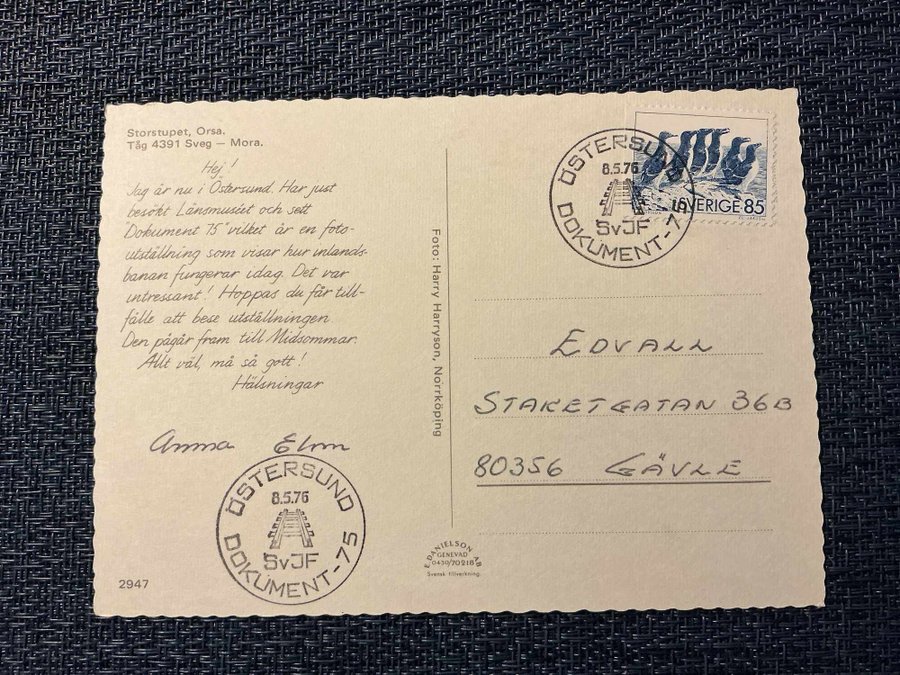 Storstupet, Orsa.
Tåg 4391 Sveg – Mora.
Hej!
Jag är nu i Östersund. Har just
besökt Länsmuséet och sett
"Dokument 75" vilket är en foto-
utställning som visar hur inlands-
banan fungerar idag. Det var
intressant! Hoppas du får till-
fälle att bese utställningen.
Den pågår fram till Midsommar.
Allt väl, må så gott!
Hälsningar
Anna Elm
ÖSTERSUND
8.5.76
SvJF
DOKUMENT-75
2947
Foto: Harry Harryson, Norrköping
E. DANIELSON AB
GENEVAD
0430/70218
Svensk tillverkning.
ÖSTERSUND
8.5.76
SvJF
DOKUMENT-75
SVERIGE 85
EDVALL
STAKETGATAN 36B
80356 GÄVLE